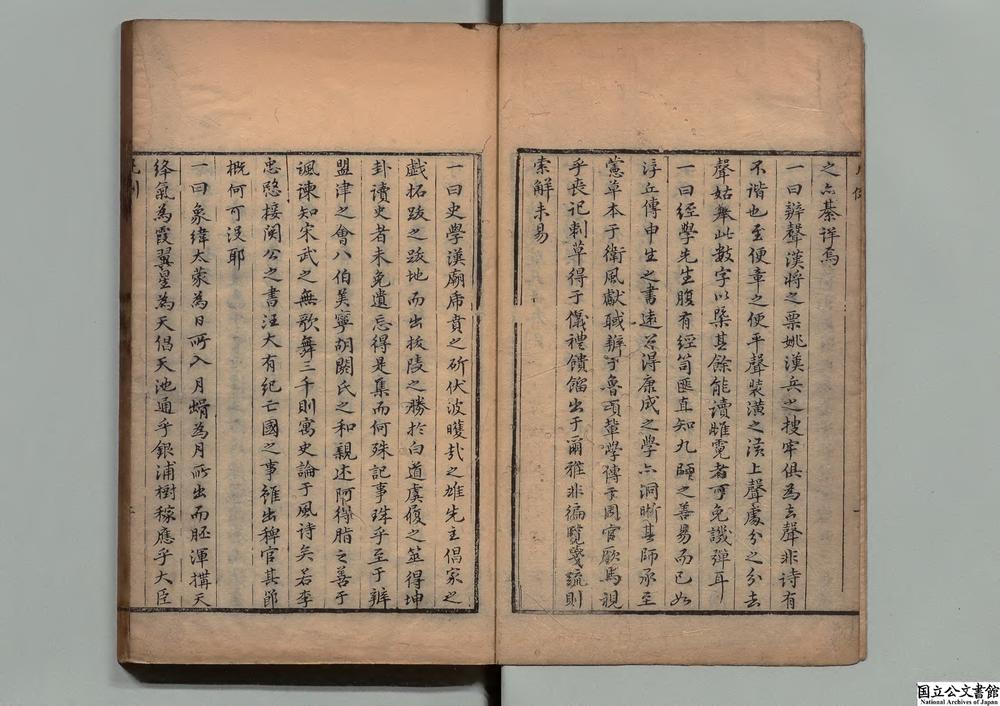 之亦綦詳焉
一曰辨聲漢將之票姚漢兵之搜牢俱為去聲非詩有
不諧也至便章之便平聲裝潢之潢上聲處分之分去
聲姑舉此數字以槩其餘能讀雌霓者可免譏彈耳
一曰經學先生腹有經笥匪直知九師之善易而已如
浮丘傳申生之書遠公得康成之學亦洞晰其師承至
蒿草本于衛風獻馘辨于魯頌鞮學傳于周官歐馬視
乎喪記刺草得于儀禮饙餾出于爾雅非徧覽箋疏則
索解未易
一曰史學漢廟席賁之斫伏波矍鑠之雄先主倡家之
戲拓跋之跋地而出拔陵之勝於白道虞復之筮得坤
卦讀史者未免遺忘得是集而何殊記事珠乎至于辨
盟津之會八伯美寧胡閼氏之和親述阿得脂之善于
諷諫知宋武之無歌舞三千則寓史論于風詩矣若李
忠愍接闵公之書汪大有紀亡國之事雖出稗官其節
概何可没耶
一曰象緯太蒙為日所入月蝟為月所出而胚渾搆天
絳氣為霞翼星為天倡天池通乎銀浦樹稼應乎大臣
国立公文書館
National Archives of Japan